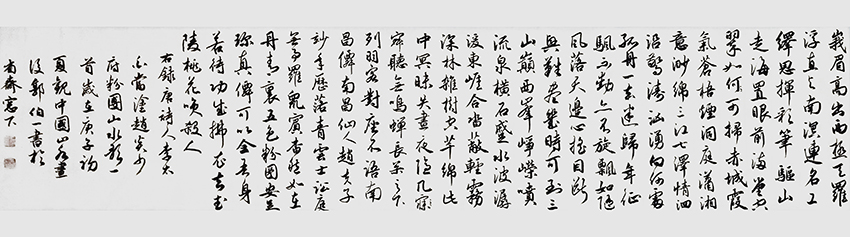 峩眉高出西極天羅
浮直与南溟連名工
繹思揮彩筆驅山
走海置眼前満堂空
翠如何可掃赤城霞
氣蒼梧煙洞庭瀟湘
意渺綿三江七澤情洄
沿驚濤洶湧向何處
孤舟一去迷歸年征
帆不動亦不旋飄如随
風落天邊心摇目斷
興難盡幾時可到三
山巔西峰崢嶸噴
流泉橫石蹙水波潺
湲東崖合沓蔽輕霧
深林雜樹空芊綿此
中冥昧失晝夜隐几
寂聽無鳴蟬長松之下
列羽客對座不語南
昌僊南昌仙人趙夫子
妙年歷落青雲士訟庭
無事羅衆賓杳然如在
丹青裏五色粉圖安足
珍真僊可以全吾身
若待功成拂衣去武
陵桃花笑殺人
右録唐詩人李太
白當塗趙炎少
府粉圖山水歌一
首歲在庚子初
夏觀中國山水畫
後郭伯一書於
齋窓下